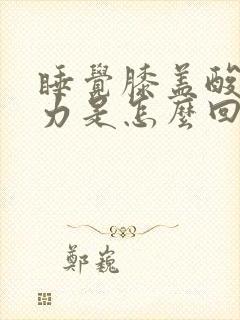 睡覺膝盖酸
力是怎麼回
鄭巍